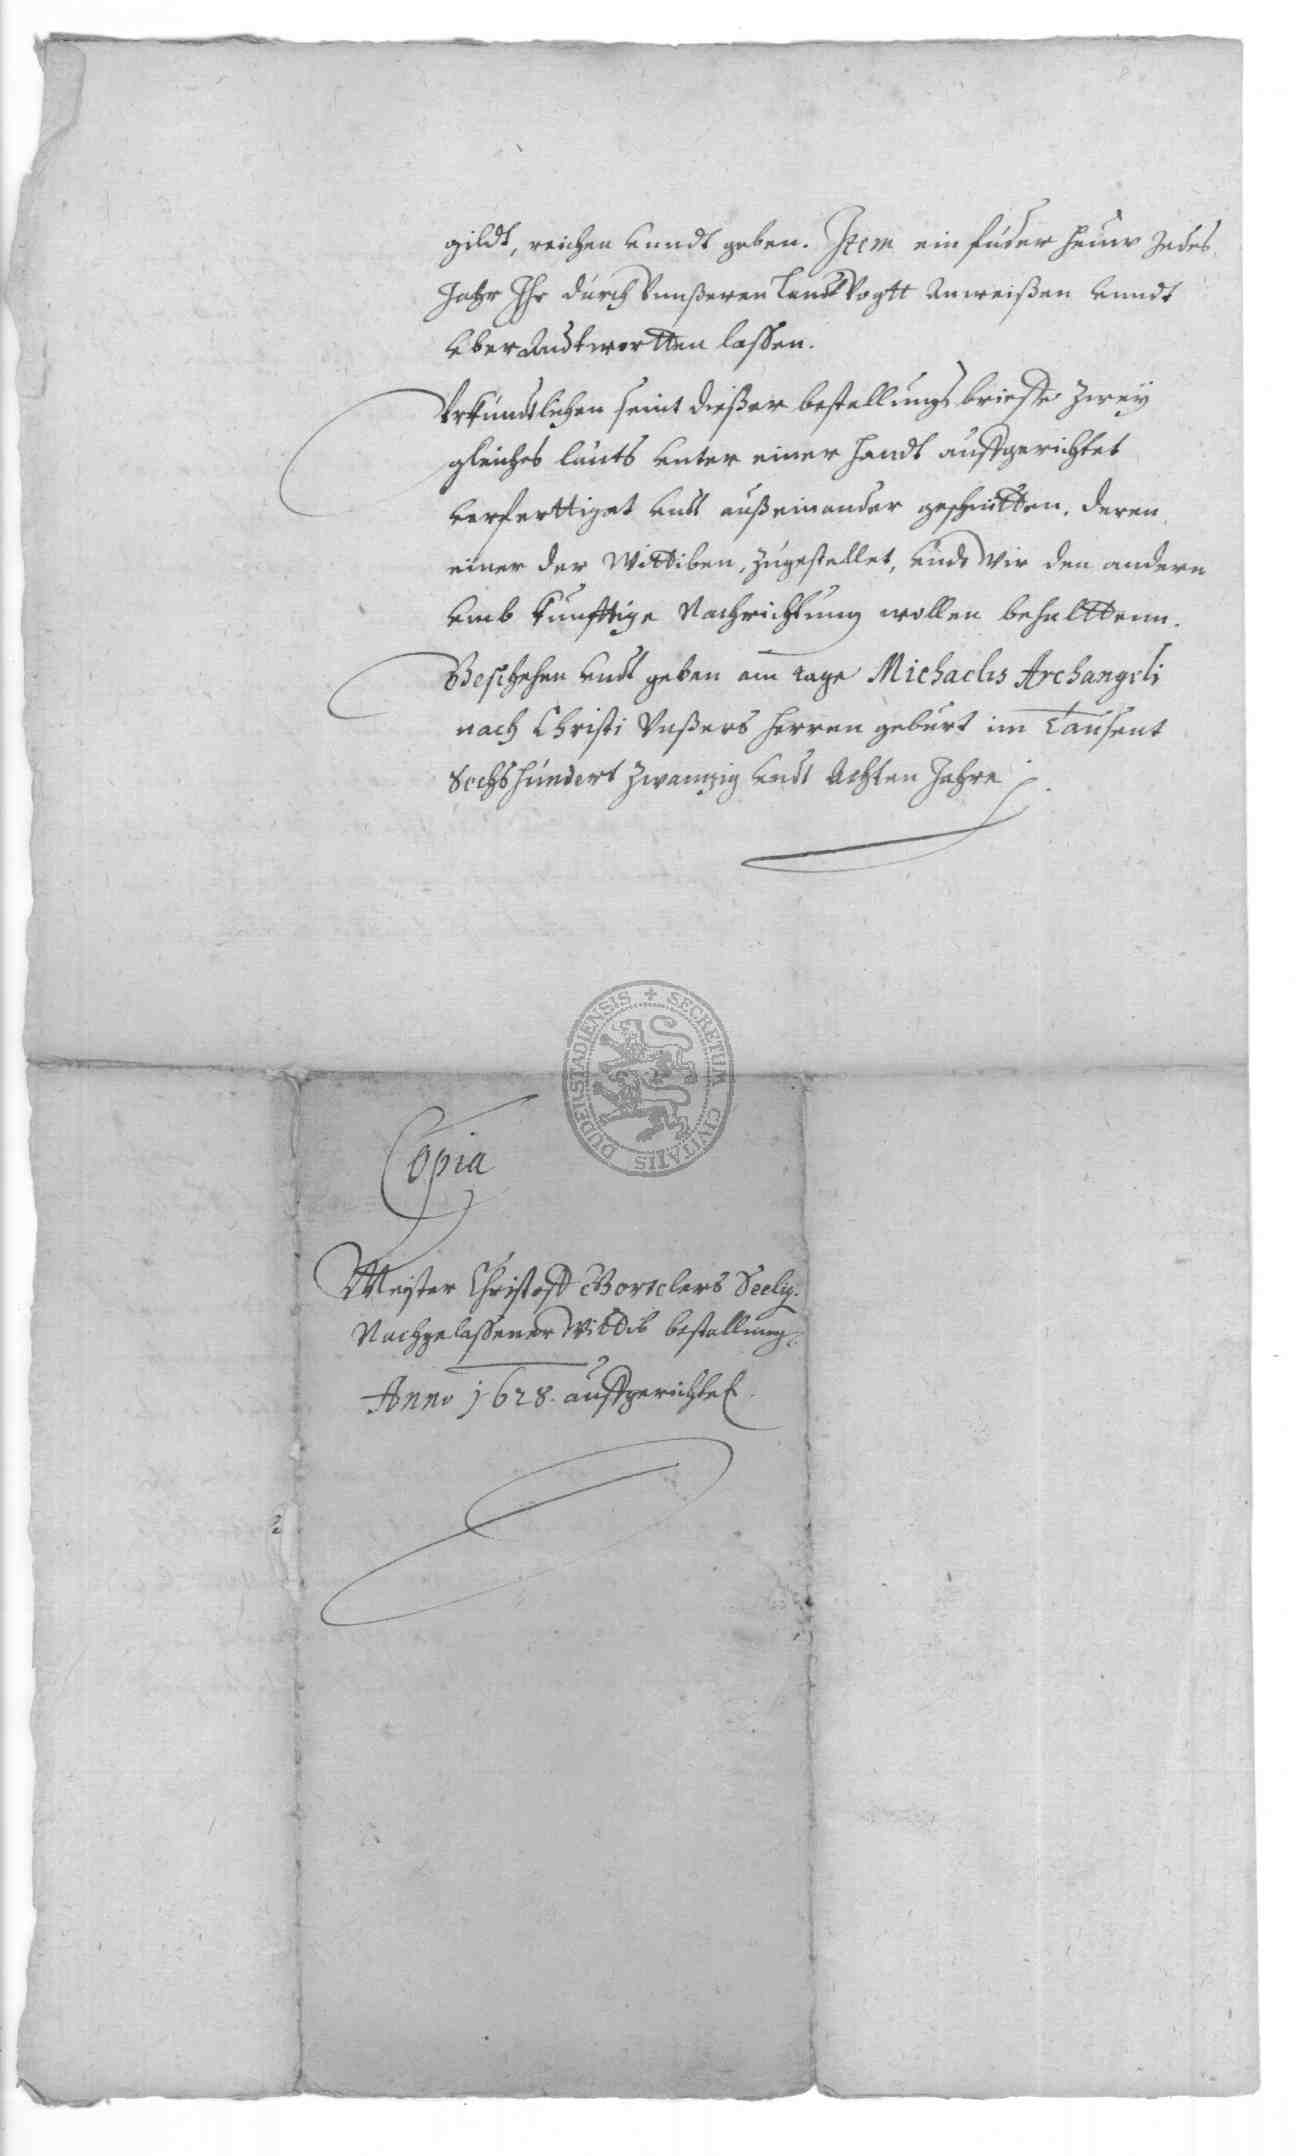 gildt, reichen unndt geben. Item ein fuder heuw Jedes
Jahr Ihr durch Vnnßeren Landt Vogtt Anweißen unndt
uberandtwortten lassen.
Vrkundtlichen seint dießer bestellungs brieffe zweÿ
gleiches lauts unter einer handt auffgerichtet
verferttiget undt außeinander geschnitten, deren
einer der Wittiben, zugestellet, undt Wir den andern
umb kunfftige Nachrichtung wollen behalttenn.
Geschehen undt geben am tage Michaelis Archangeli
nach Christi Vnßers herren geburt im Tausent
Sechshundert Zwanzig undt Achten Jahre
Copia
Meister Christoff Seelig.
Nachgelassener Wittib bestallung.
Anno 1628. auffgerichtet.
DUDERSTADIENSIS + SECRETUM CIVITATIS